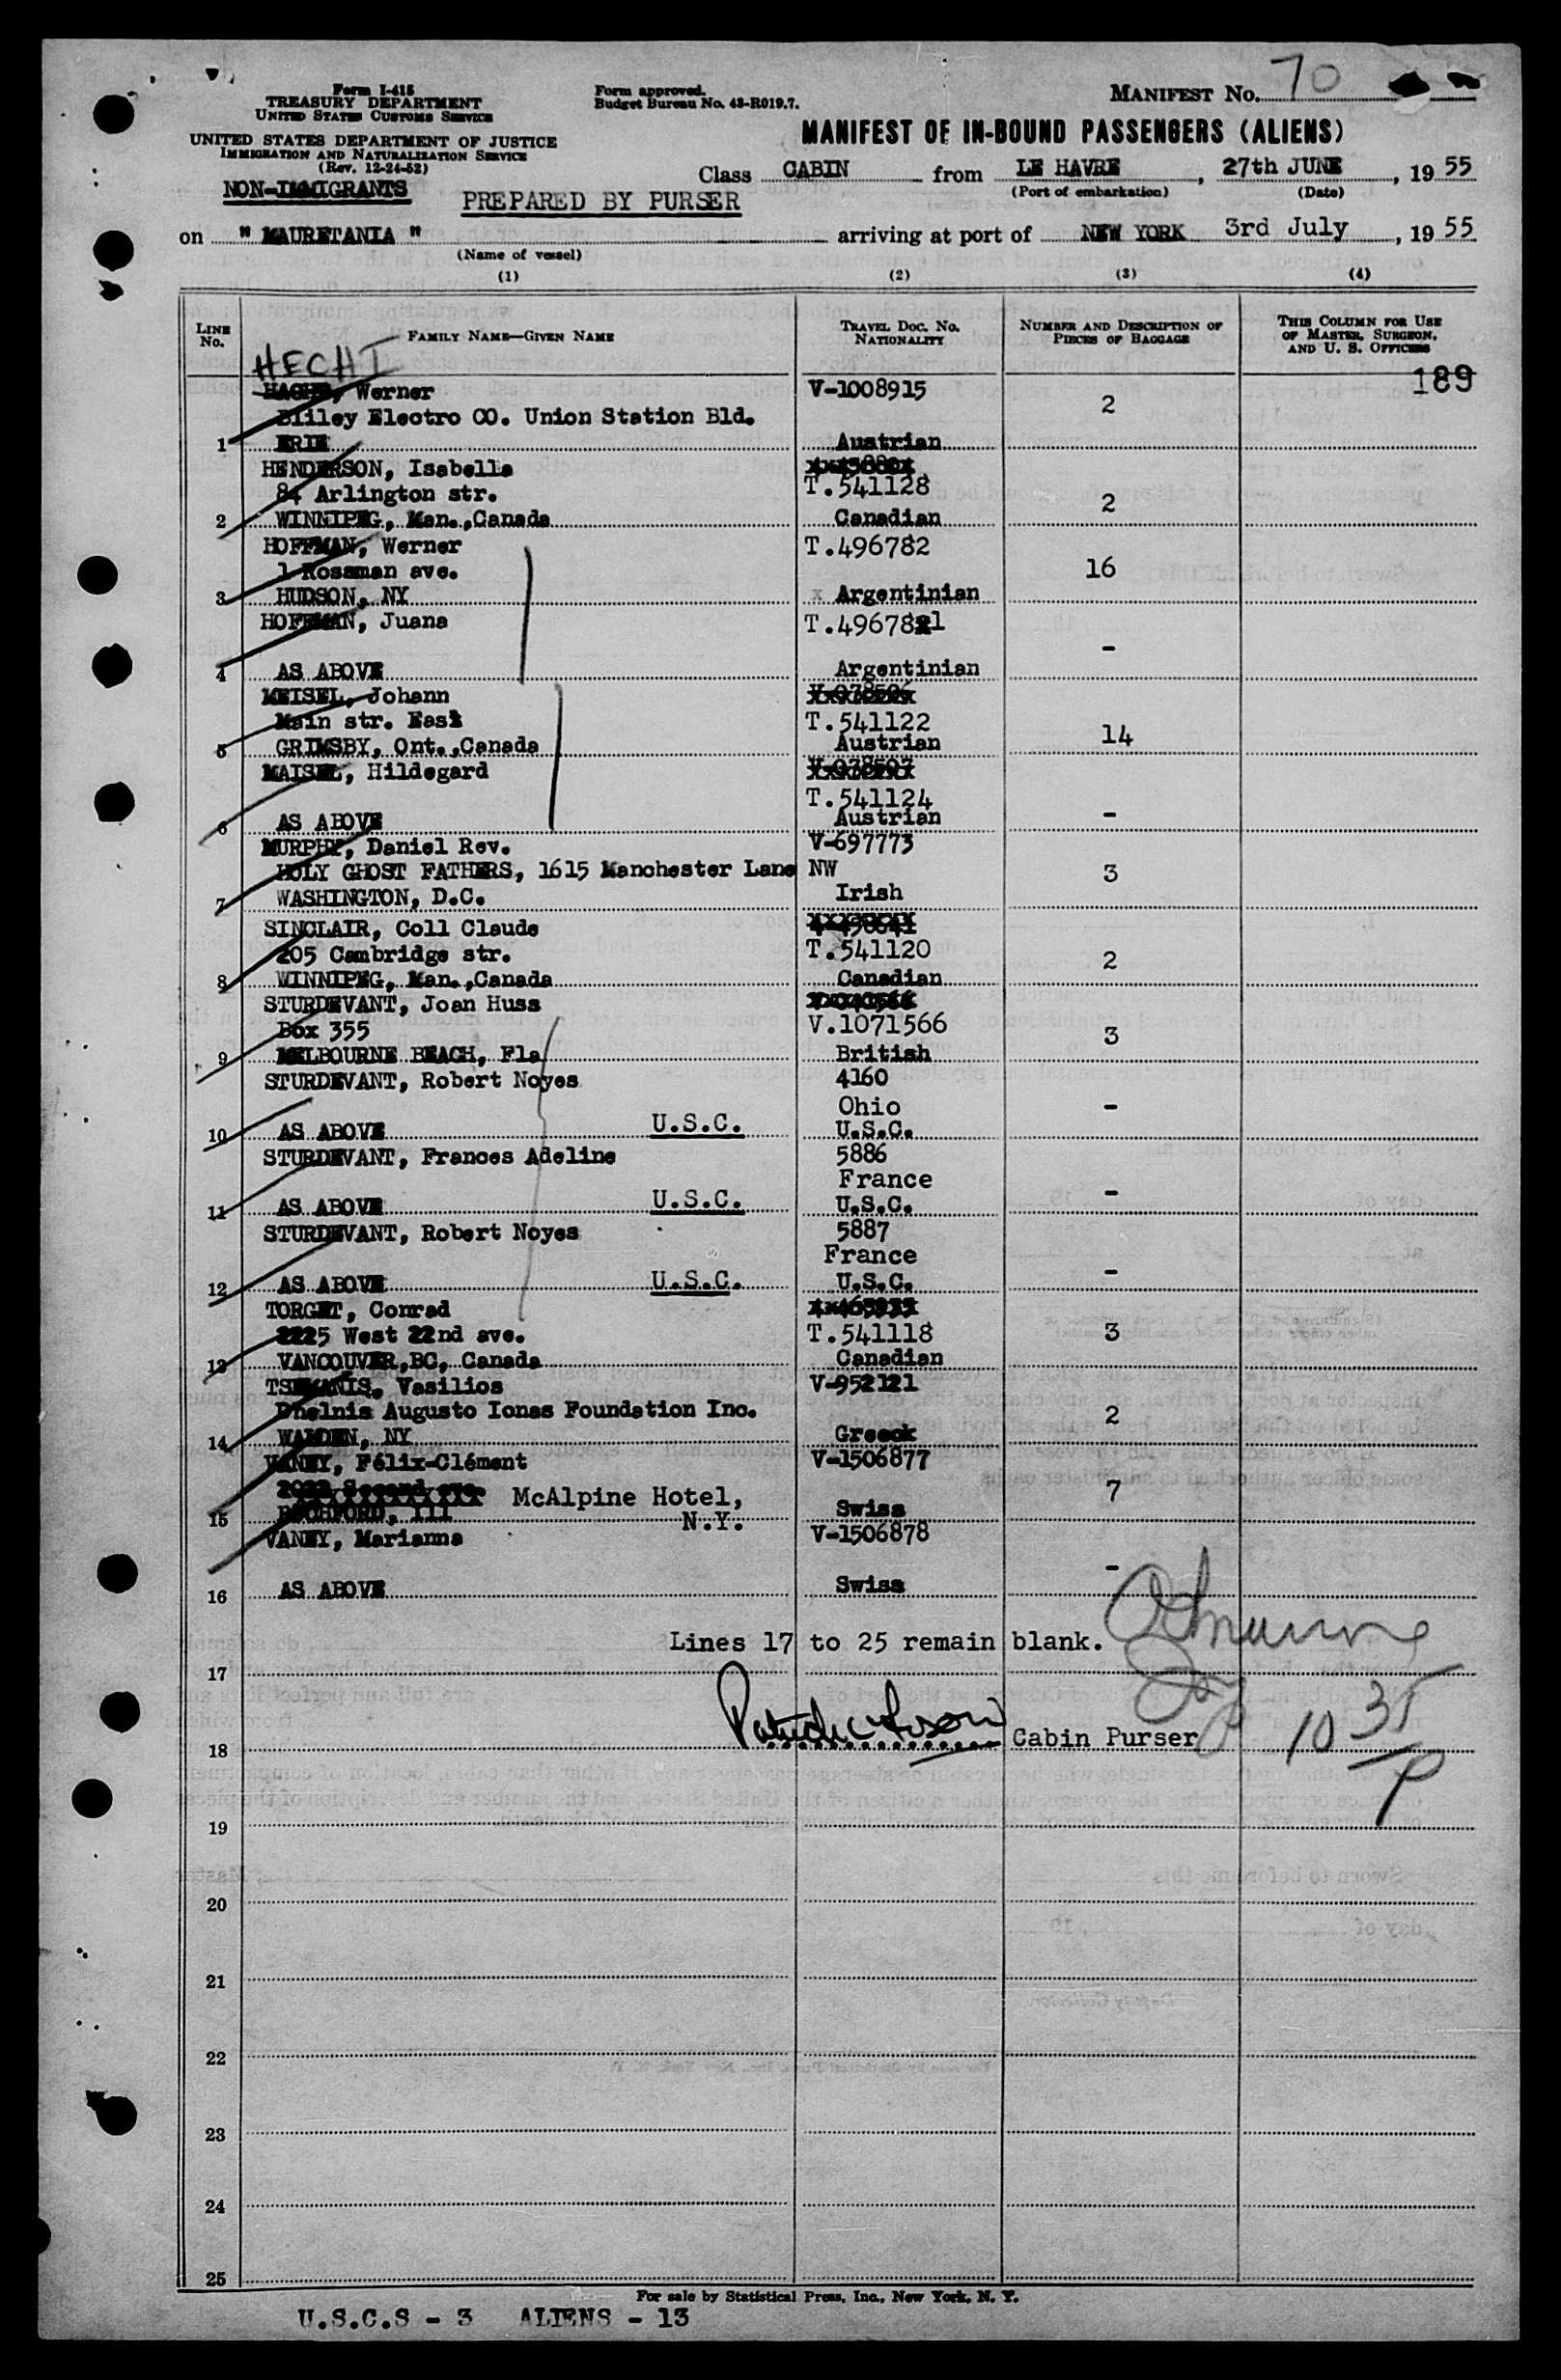 Form I-415
TREASURY DEPARTMENT
UNITED STATES CUSTOMS SERVICE
UNITED STATES DEPARTMENT OF JUSTICE
IMMIGRATION AND NATURALIZATION SERVICE
(Rev. 12-24-52)
NON-IMMIGRANTS
Form approved.
Budget Bureau No. 43-R019.7.
MANIFEST No. 70
MANIFEST OF IN-BOUND PASSENGERS (ALIENS)
PREPARED BY PURSER
Class CABIN from LE HAVRE, 27th JUNE, 19 55
(Port of embarkation) (Date)
on " MAURETANIA " arriving at port of NEW YORK 3rd July, 19 55
(Name of vessel)
(1) (2) (3) (4)
LINE No. FAMILY NAME—GIVEN NAME TRAVEL DOC. No. NATIONALITY NUMBER AND DESCRIPTION OF PIECES OF BAGGAGE THIS COLUMN FOR USE OF MASTER, SURGEON, AND U. S. OFFICERS
HECHT 189
Werner V-1008915
Bliley Electro CO. Union Station Bld. 2
1 ERIE Austrian
HENDERSON, Isabella
84 Arlington str. T.541128 2
2 WINNIPEG, Man.,Canada Canadian
HOFFMAN, Werner T.496782
1 Rossman ave. 16
3 HUDSON, NY x Argentinian
HOFFMAN, Juana T.496781
-
4 AS ABOVE Argentinian
MEISEL, Johann V-078506
Main str. East T.541122
5 GRIMSBY, Ont.,Canada Austrian 14
MAISEL, Hildegard V-078507
T.541124
6 AS ABOVE Austrian -
MURPHY, Daniel Rev. V-697773
HOLY GHOST FATHERS, 1615 Manchester Lane NW 3
7 WASHINGTON, D.C. Irish
SINCLAIR, Coll Claude
205 Cambridge str. T.541120 2
8 WINNIPEG, Man.,Canada Canadian
STURDEVANT, Joan Huss
Box 355 V.1071566 3
9 MELBOURNE BEACH, Fla British
STURDEVANT, Robert Noyes 4160
Ohio -
10 AS ABOVE U.S.C. U.S.C.
STURDEVANT, Frances Adeline 5886
France -
11 AS ABOVE U.S.C. U.S.C.
STURDEVANT, Robert Noyes 5887
France -
12 AS ABOVE U.S.C. U.S.C.
TORGET, Conrad
2225 West 22nd ave. T.541118 3
13 VANCOUVER,BC, Canada Canadian
TSEKANIS, Vasilios V-952121
Phelnis Augusto Ionas Foundation Inc. 2
14 WALDEN, NY Greeck
VANEY, Félix-Clément V-1506877
2022 Second ave. McAlpine Hotel, 7
15 ROCHFORD, Ill N.Y. Swiss
VANEY, Marianna V-1506878
-
16 AS ABOVE Swiss
Lines 17 to 25 remain blank.
17
18 Cabin Purser 10 35/P
19
20
21
22
23
24
25
For sale by Statistical Press, Inc., New York, N. Y.
U.S.C.S - 3 ALIENS - 13